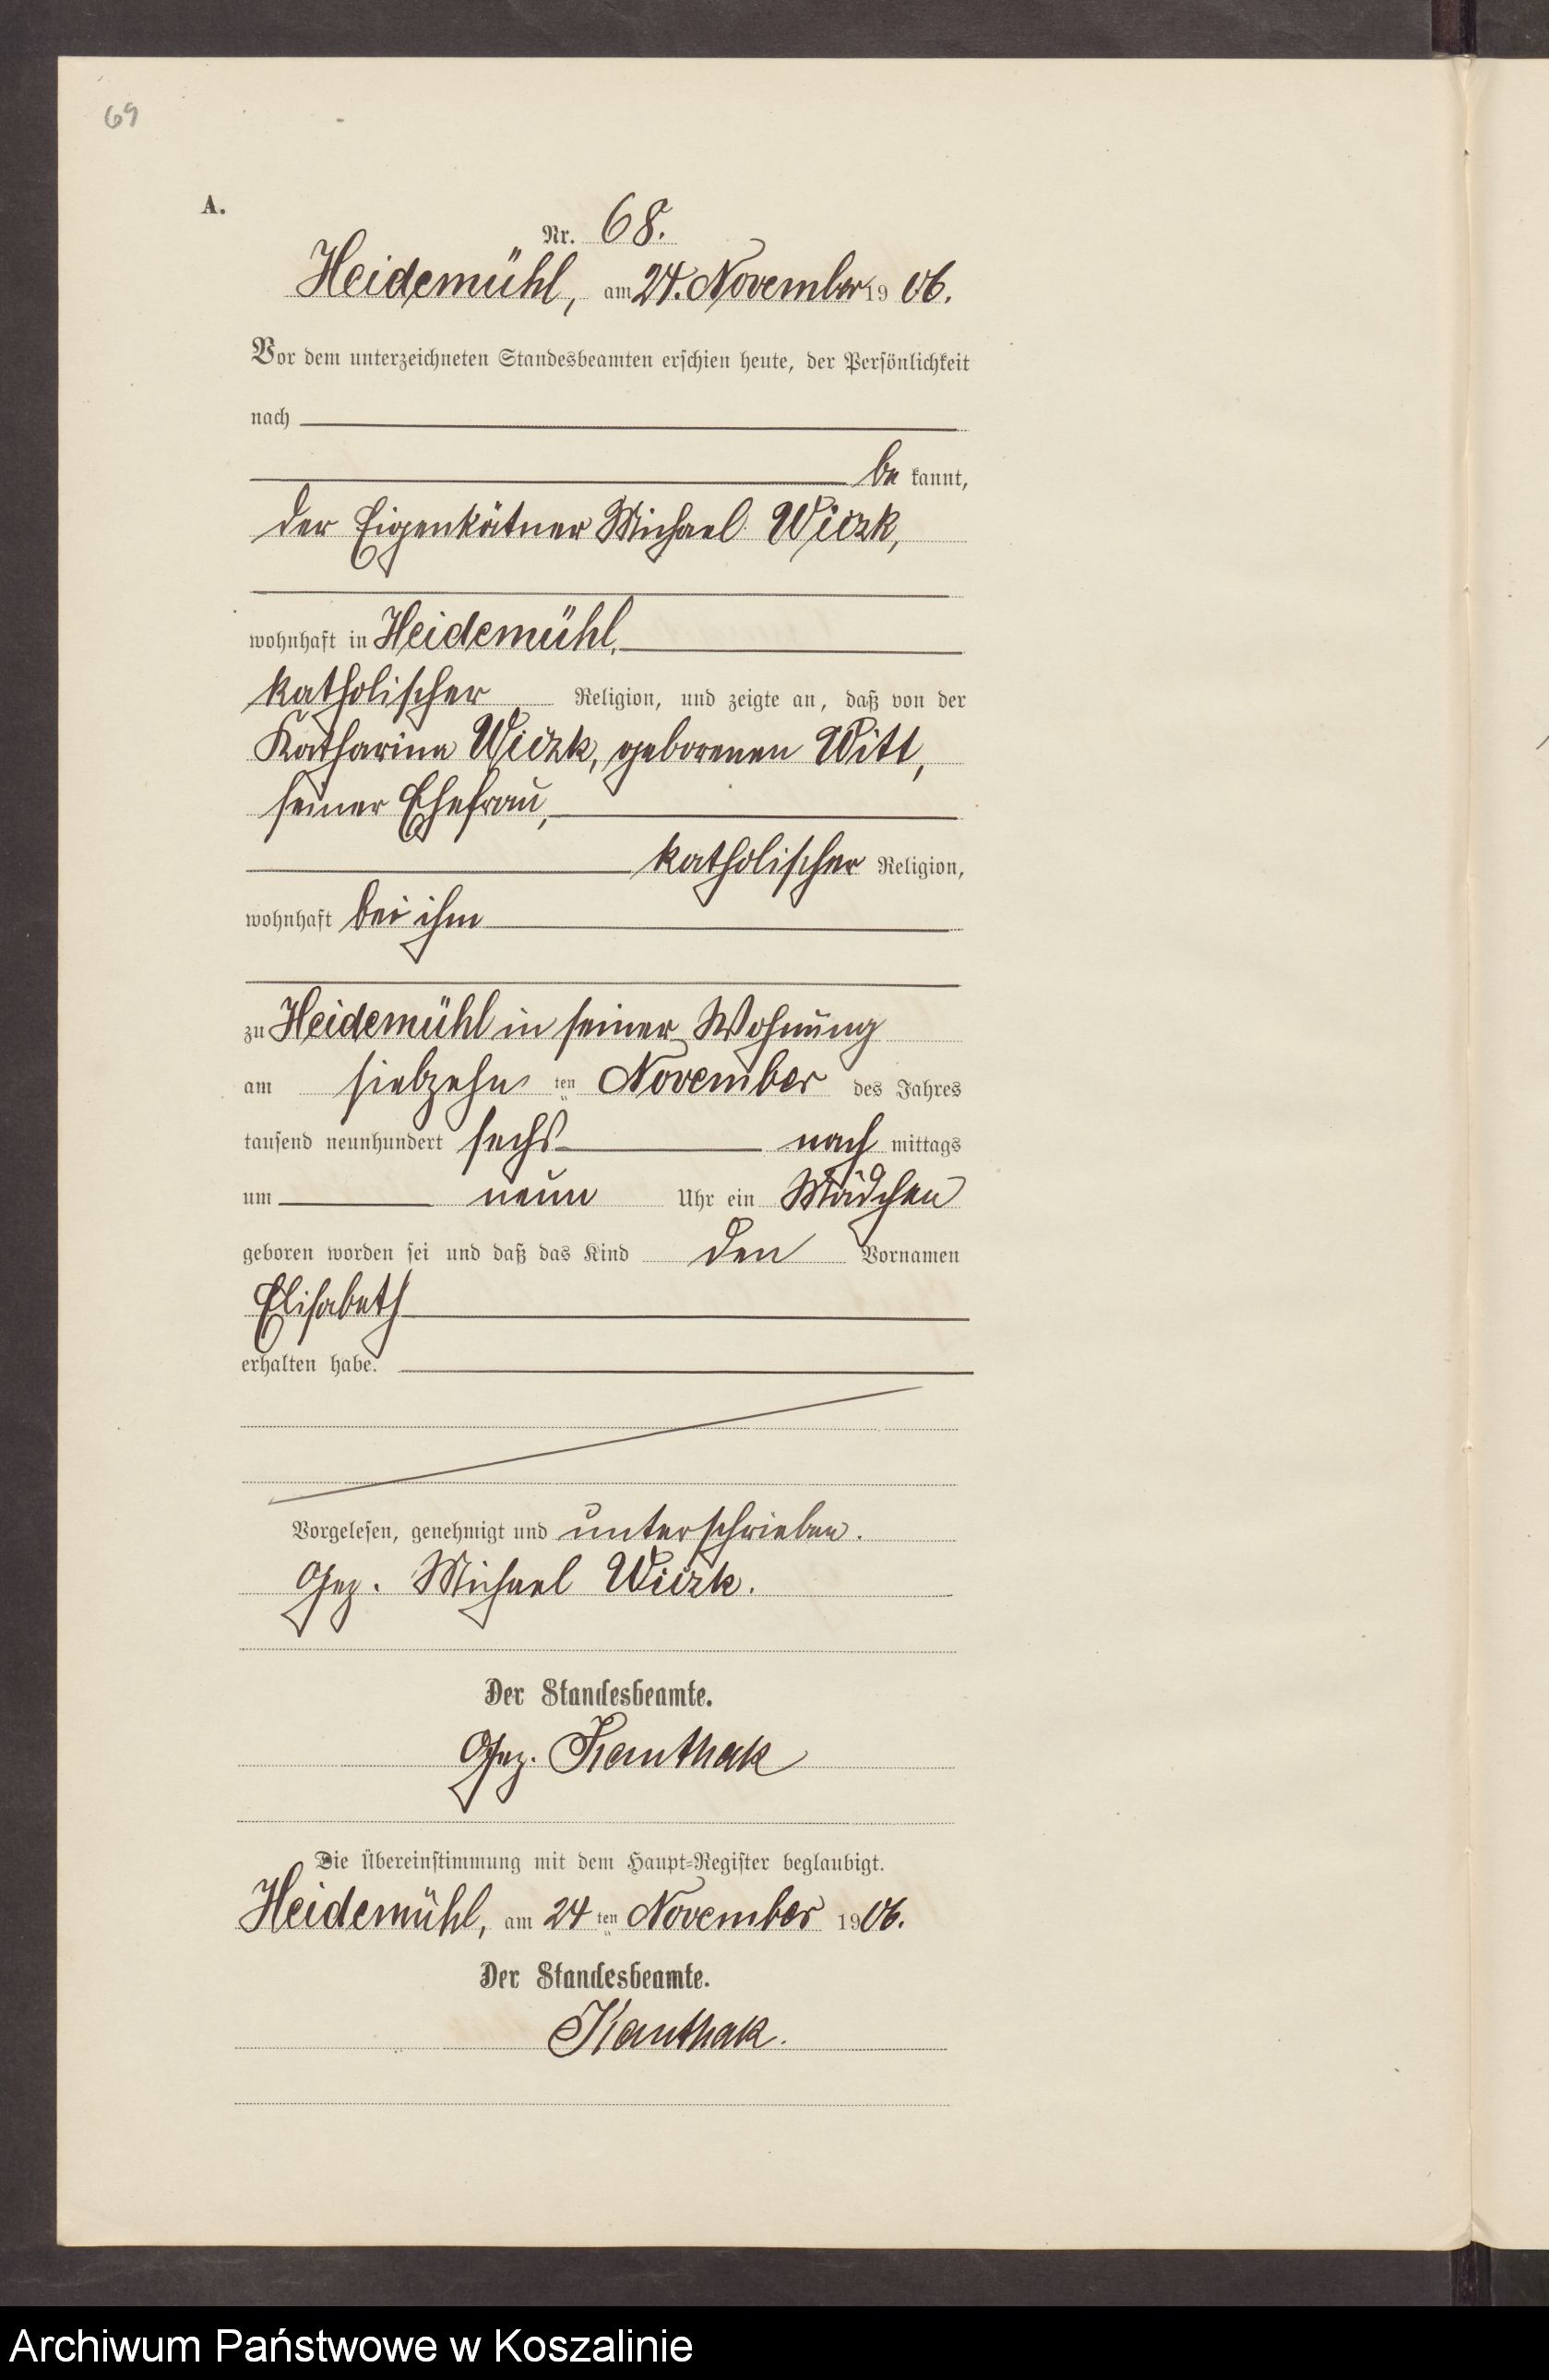 69
A.
Nr. 68.
Heidemühl, am 24. November 19 06.
Vor dem unterzeichneten Standesbeamten erschien heute, der Persönlichkeit
nach
be kannt,
der Eigenkätner Michael
wohnhaft in Heidemühl,
katholischer Religion, und zeigte an, daß von der
Katharina geborenen Witt,
seiner Ehefrau,
katholischer Religion,
wohnhaft bei ihm
zu Heidemühl in seiner Wohnung
am siebzehn ten November des Jahres
tausend neunhundert sechs nach mittags
um neun Uhr ein Mädchen
geboren worden sei und daß das Kind den Vornamen
Elisabeth
erhalten habe.
Vorgelesen, genehmigt und unterschrieben.
Gez. Michael
Der Standesbeamte.
Gez. Kanthak
Die Übereinstimmung mit dem Haupt=Register beglaubigt.
Heidemühl, am 24 ten November 1906.
Der Standesbeamte.
Kanthak.
Archiwum Państwowe w Koszalinie